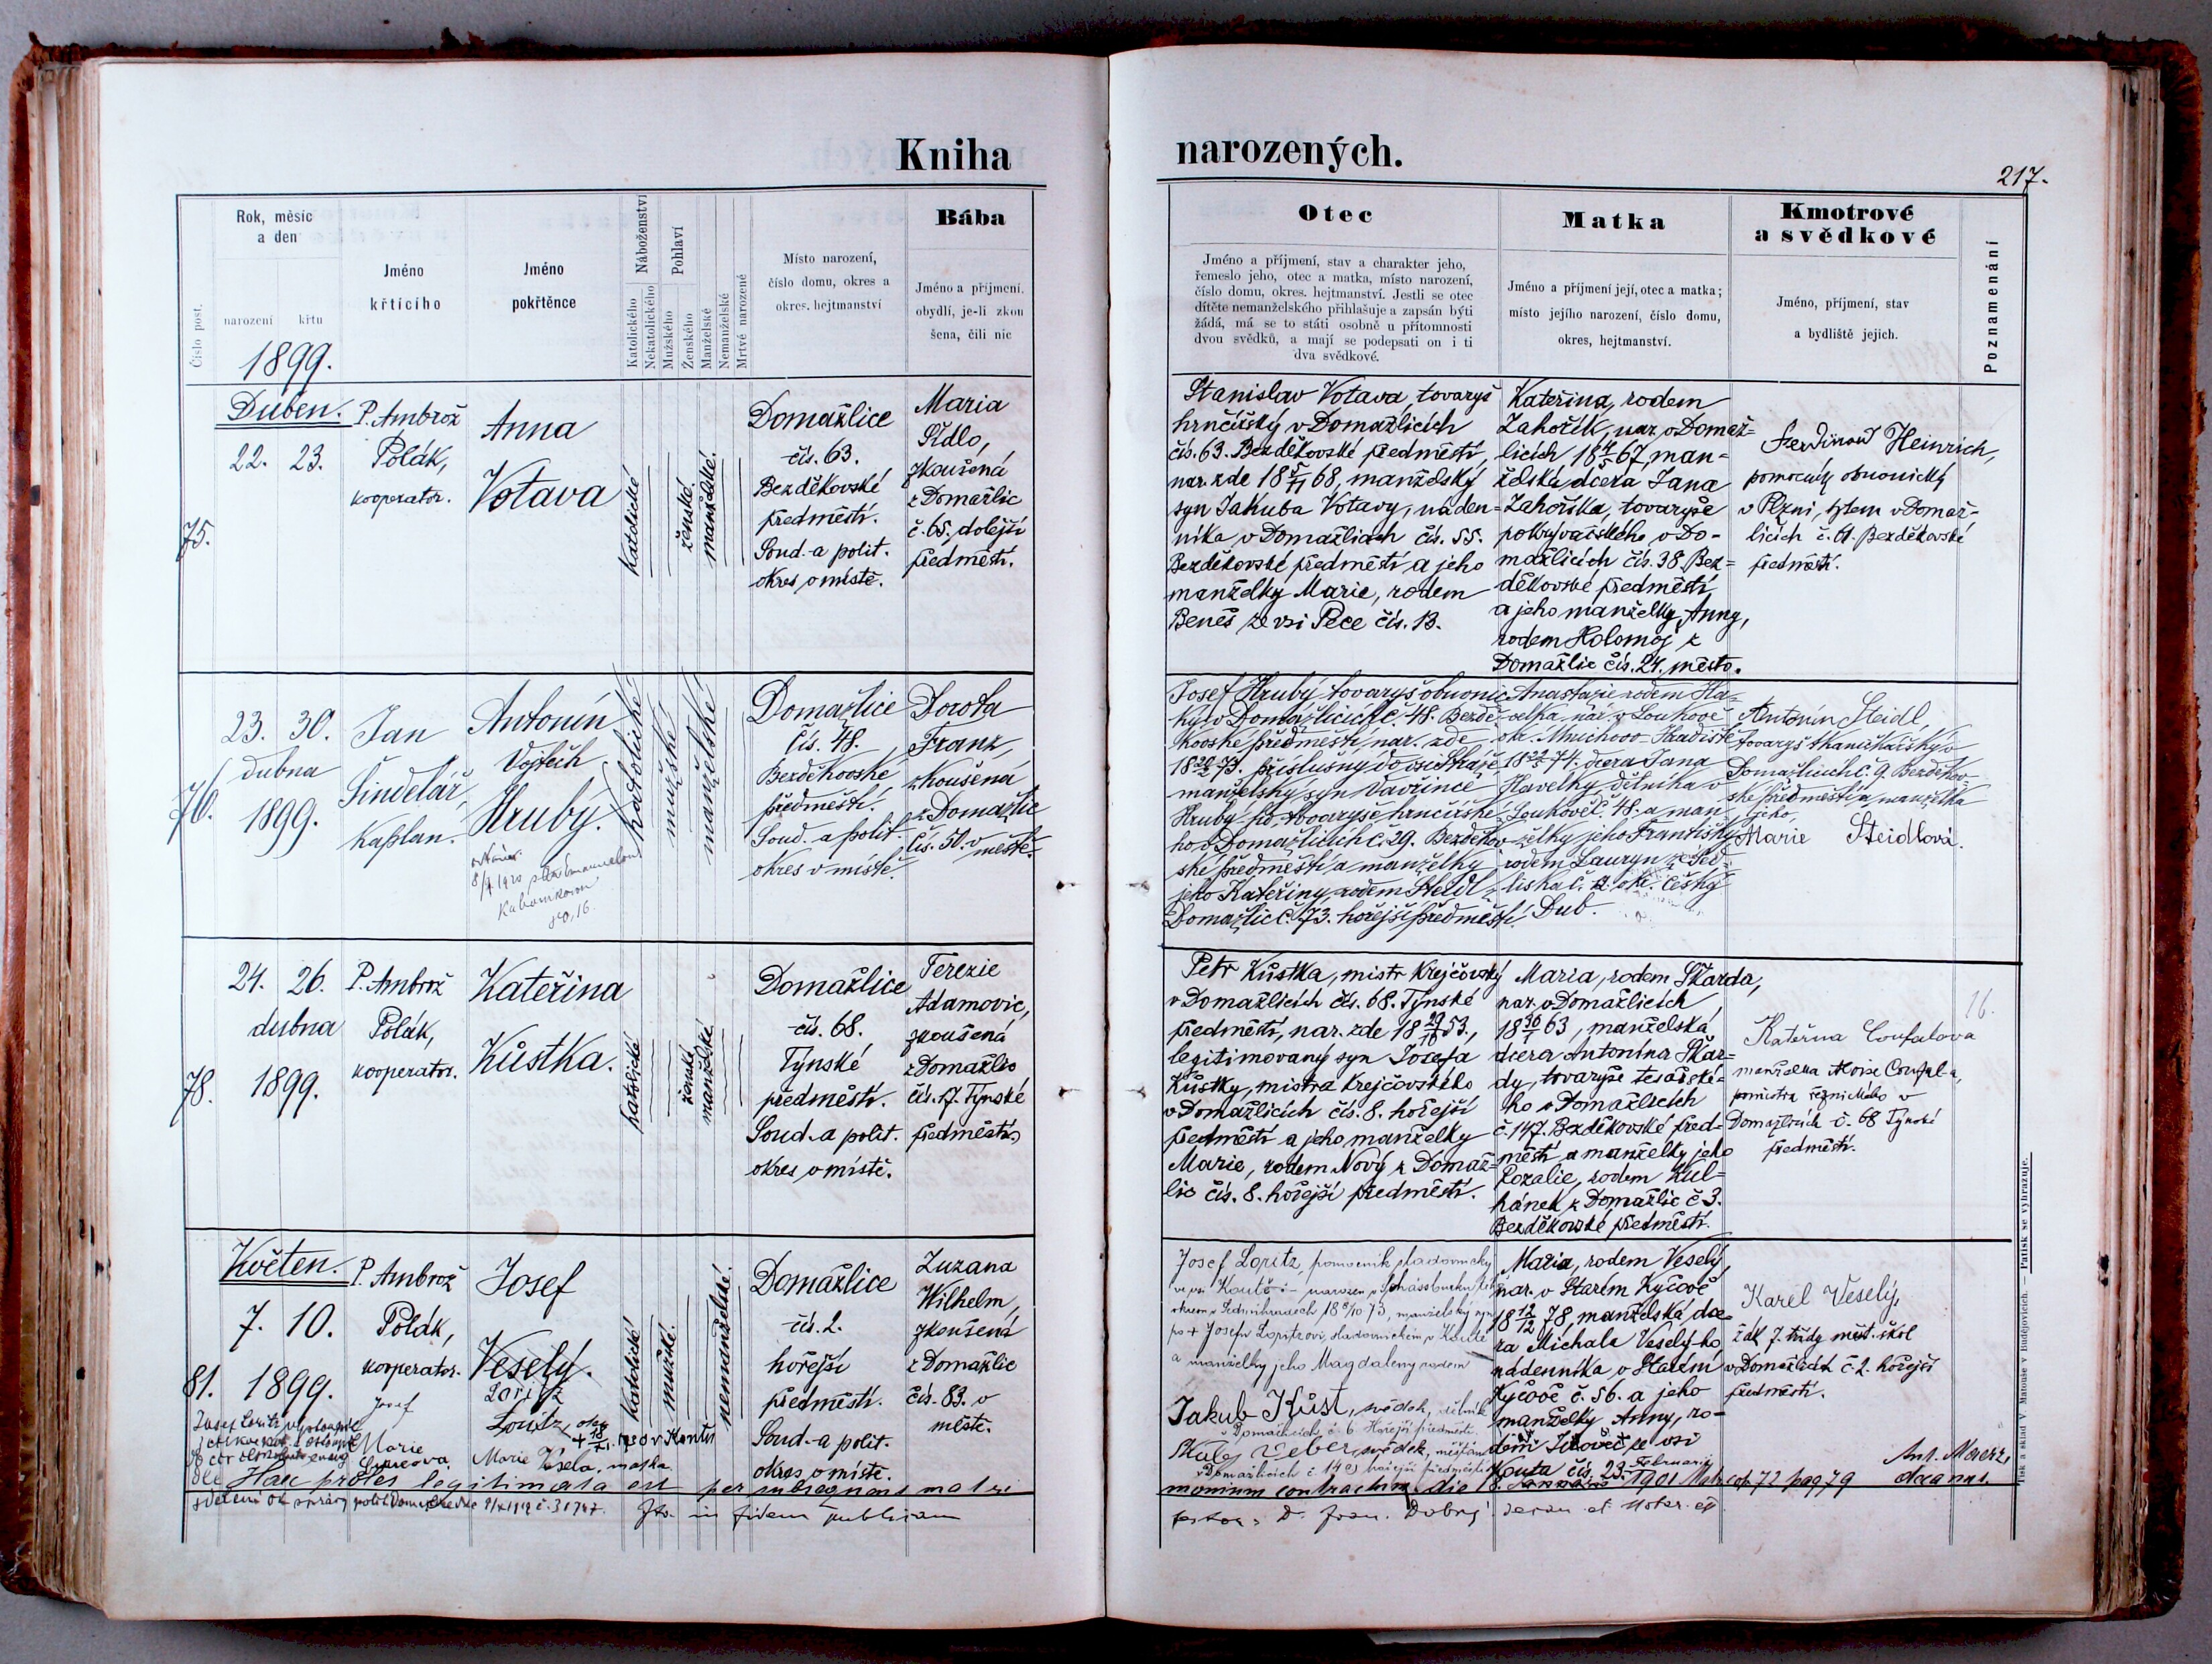 Kniha
narozených.
217.
Číslo post.
Rok, měsíc
a den
narození
křtu
1899.
Jméno
křtícího
Jméno
pokřtěnce
Náboženství
Katolického
Nekatolického
Pohlaví
Mužského
Ženského
Manželské
Nemanželské
Mrtvě narozené
Místo narození,
číslo domu, okres a
okres. hejtmanství
Bába
Jméno a příjmení.
obydlí, je-li zkou
šena, čili nic
Otec
Jméno a příjmení, stav a charakter jeho,
řemeslo jeho, otec a matka, místo narození,
číslo domu, okres. hejtmanství. Jestli se otec
dítěte nemanželského přihlašuje a zapsán býti
žádá, má se to státi osobně u přítomnosti
dvou svědků, a mají se podepsati on i ti
dva svědkové.
Matka
Jméno a příjmení její, otec a matka;
místo jejího narození, číslo domu,
okres, hejtmanství.
Kmotrové
a svědkové
Jméno, příjmení, stav
a bydliště jejich.
Poznamenání
75.
Duben.
22. 23.
P. Ambrož
Polák,
kooperator.
Anna
Votava
katolické
ženské.
manželské.
Domažlice
čís. 63.
Bezděkovské
předměstí.
Soud. a polit.
okres v místě.
Maria
Sídlo,
zkoušená
z Domažlic
č. 65, dolejší
předměstí.
Stanislav Votava, tovaryš
hrnčířský v Domažlicích
čís. 63. Bezděkovské předměstí,
nar. zde 18 5/11 68, manželský
syn Jakuba Votavy, náden-
níka v Domažlicích čís. 55.
Bezděkovské předměstí a jeho
manželky Marie, rodem
Beneš ze vsi Pece čís. 13.
Kateřina, rodem
Zahořík, nar. v Domaž-
licích 18 4/5 67, man-
želská dcera Jana
Zahoříka, tovaryše
pokrývačského v Do-
mažlicích čís. 38. Bez-
děkovské předměstí
a jeho manželky Anny,
rodem Holomoj z
Domažlic čís. 24. město.
Ferdinand Heinrich,
pomocník obuvnický
v Plzni, bytem v Domaž-
licích č. 61. Bezděkovské
předměstí.
76.
23. 30.
dubna
1899.
Jan
Šindelář,
kaplan.
Antonín
Vojtěch
Hrubý.
katolické
mužské
manželské
Domažlice
čís. 48.
Bezděkovské
předměstí.
Soud. a polit.
okres v místě.
Dorota
Franz,
zkoušená
z Domažlic
čís. 50. v
městě.
Josef Hrubý tovaryš obuvnic-
ký v Domažlicích č. 48. Bezdě-
kovské předměstí, nar. zde
manželský syn Vavřince
Hrubý-ho, tovaryše hrnčířské-
ho v Domažlicích č. 29. Bezděkov-
ské předměstí a manželky
jeho Kateřiny, rodem Steidl z
Domažlic č. 73. hořejší předměstí.
Anastasie rodem Ha-
velka nar. v Loukově
okr. Mnichovo-Hradiště
dcera Jana
Havelky, dělníka v
Loukově č. 48. a man-
želky jeho Františky
rodem Lauryn
okr. Český
Dub.
Antonín Steidl,
tovaryš tkaničkářský v
Domažlicích č. 9. Bezděkov-
ské předměstí a manželka
jeho,
Marie Steidlová.
78.
24. 26.
dubna
1899.
P. Ambrož
Polák,
kooperator.
Kateřina
Kůstka.
katolické
ženské
manželské
Domažlice
čís. 68.
Týnské
předměstí.
Soud. a polit.
okres v místě.
Terezie
Adamovic,
zkoušená
z Domažlic
čís. 17. Týnské
předměstí.
Petr Kůstka, mistr krejčovský
v Domažlicích čís. 68. Týnské
předměstí, nar. zde
legitimovaný syn Josefa
Kůstky, mistra krejčovského
v Domažlicích čís. 8. hořejší
předměstí a jeho manželky
Marie, rodem Nový z Domaž-
lic čís. 8. hořejší předměstí.
Maria, rodem Škarda,
nar. v Domažlicích
manželská
dcera Antonína Škar-
dy, tovaryše tesařské-
ho v Domažlicích
č. 147. Bezděkovské před-
městí a manželky jeho
Rozalie, rodem Kul-
hánek z Domažlic č 3.
Bezděkovské předměstí.
16.
Kateřina Coufalova
manželka Aloise Coufal-a,
pomistra řeznického v
Domažlicích č. 68 Týnské
předměstí.
81.
Květen.
7. 10.
1899.
P. Ambrož
Polák,
kooperator.
Josef
Veselý.
Loritz
katolické
mužské.
nemanželské.
Domažlice
čís. 2.
hořejší
předměstí.
Soud. a polit.
okres v místě.
Zuzana
Wilhelm,
zkoušená
z Domažlic
čís. 83. v
městě.
Josef Loritz, pomocník sladovnický
ve vsi Koutě
manželský syn
a manželky jeho Magdaleny rodem
Jakub Kůst, svědek, dělník
v Domažlicích č. 6 Hořejší předměstí.
Weber, svědek, měšťan
v Domažlicích
Maria, rodem Veselý,
nar. v Starém Kyčově
18 12/12 78, manželská dce-
ra Michala Veselý-ho
nádenníka v Starém
Kyčově č. 56. a jeho
manželky Anny, ro-
dem
ze vsi
Kouta čís. 23.
Karel Veselý,
žák 7. třídy měst. škol
v Domažlicích č. 2. hořejší
předměstí.
Marie Vesela, matka
Haec proles legitimata est per subsequens matri
monium contractum die
Februarii
1901
pag 79
in fidem publicam
Tisk a sklad V. Matouše v Budějovicích. — Patisk se vyhrazuje.